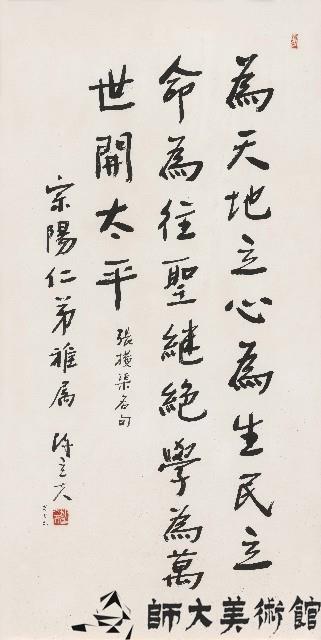 為天地立心為生民立
命為往聖継絕學為萬
世開太平
張橫渠名句
宗陽仁弟雅屬
陳立夫
師大美術館